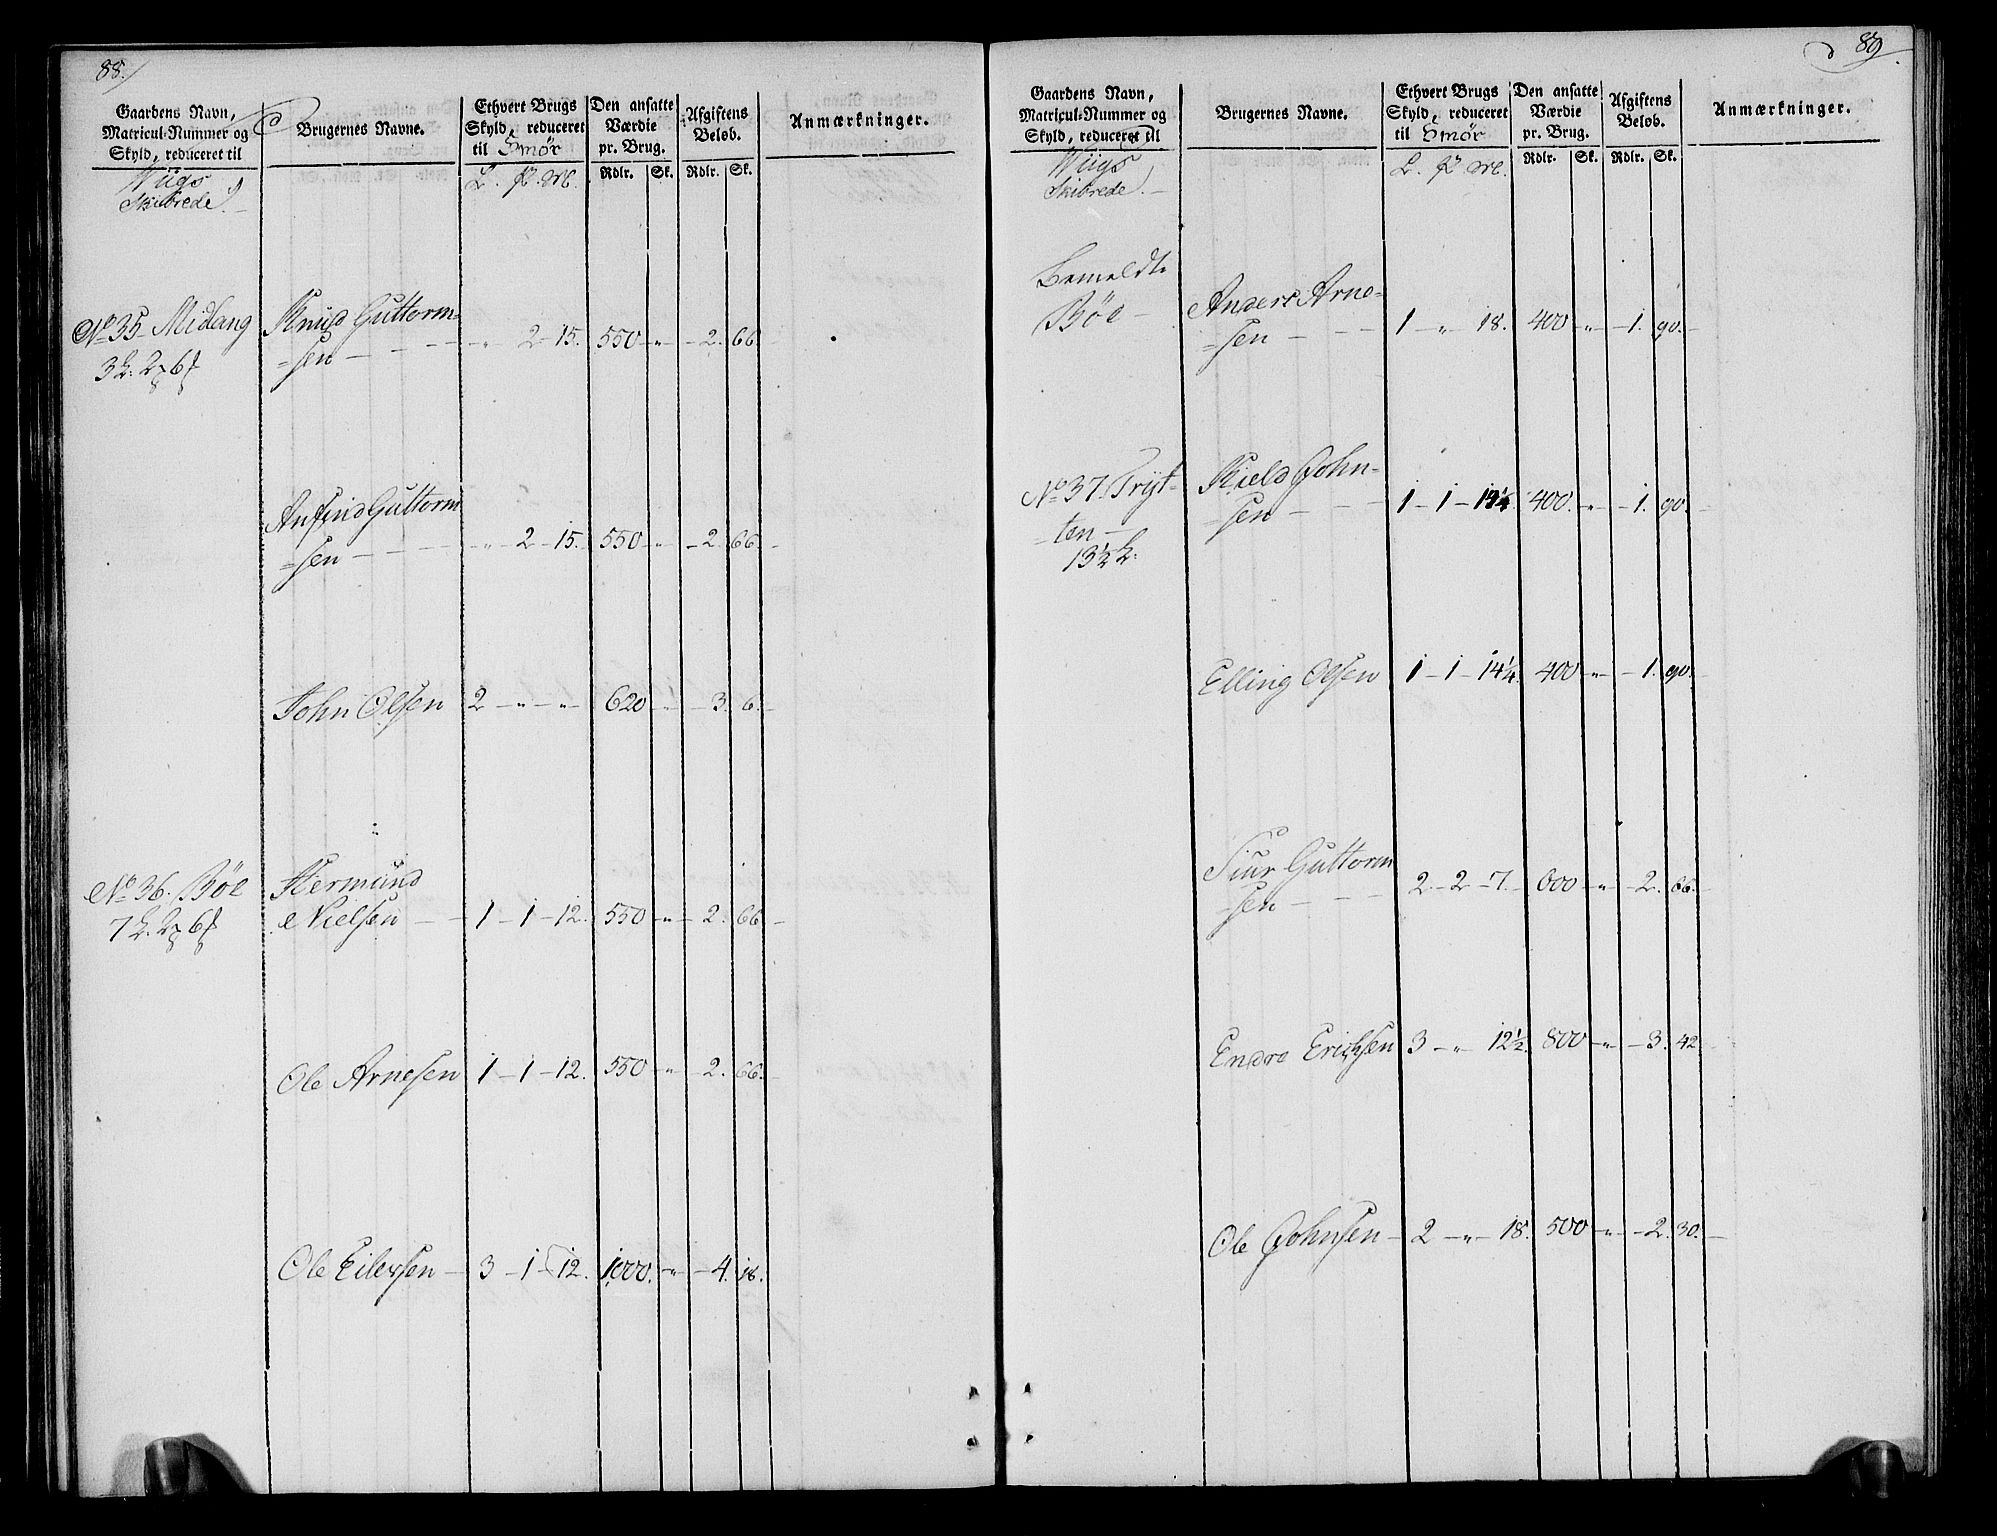 88.
Gaardens Navn, Matricul-Nummer og Skyld, reduceret til
Brugernes Navne.
Ethvert Brugs Skyld, reduceret til Smør
Den ansatte Værdie pr. Brug.
Afgiftens Beløb.
Anmærkninger.
Rdlr. Sk. Rdlr. Sk.
Wiigs
Skibrede.
No 35 Midlang Knud Guttorm-
3 L. 2 6 -sen - „ 2 - 15. 550 „ - 2. 66.
Anfind Guttorm
-sen - „ 2 - 15. 550 „ - 2. 66.
John Olsen 2 - „ - „ 620 „ - 3. 6.
No 36. Bøe Hermund
7 L. 2 6 Nielsen - 1 - 1 - 12. 550 „ - 2. 66
Ole Arnesen 1 - 1 - 12. 550 „ - 2. 66.
Ole Eilersen - 3 - 1 - 12. 1000. „ - 4. 18.
89.
Gaardens Navn, Matricul-Nummer og Skyld, reduceret til
Brugernes Navne.
Ethvert Brugs Skyld, reduceret til Smør
Den ansatte Værdie pr. Brug.
Afgiftens Beløb.
Anmærkninger.
Rdlr. Sk. Rdlr. Sk.
Wiigs
Skibrede.
Bemeldte
Bøe - Anders Arne-
-sen - 1 „ 18. 400 „ - 1. 90.
No 37. Tryt- Kield John-
-ten -sen - 1 - 1 - 14¼ 400. „ - 1. 90.
13½ L.
Elling Olsen 1 - 1 - 14¼. 400 „ - 1. 90.
Siur Guttorm
-sen - 2 - 2 - 7. 600 „ - 2. 66.
Endre Erichsen 3 - „ 12½. 800 „ - 3. 42
Ole Johnsen - 2 - „ - 18. 500 „ - 2. 30.